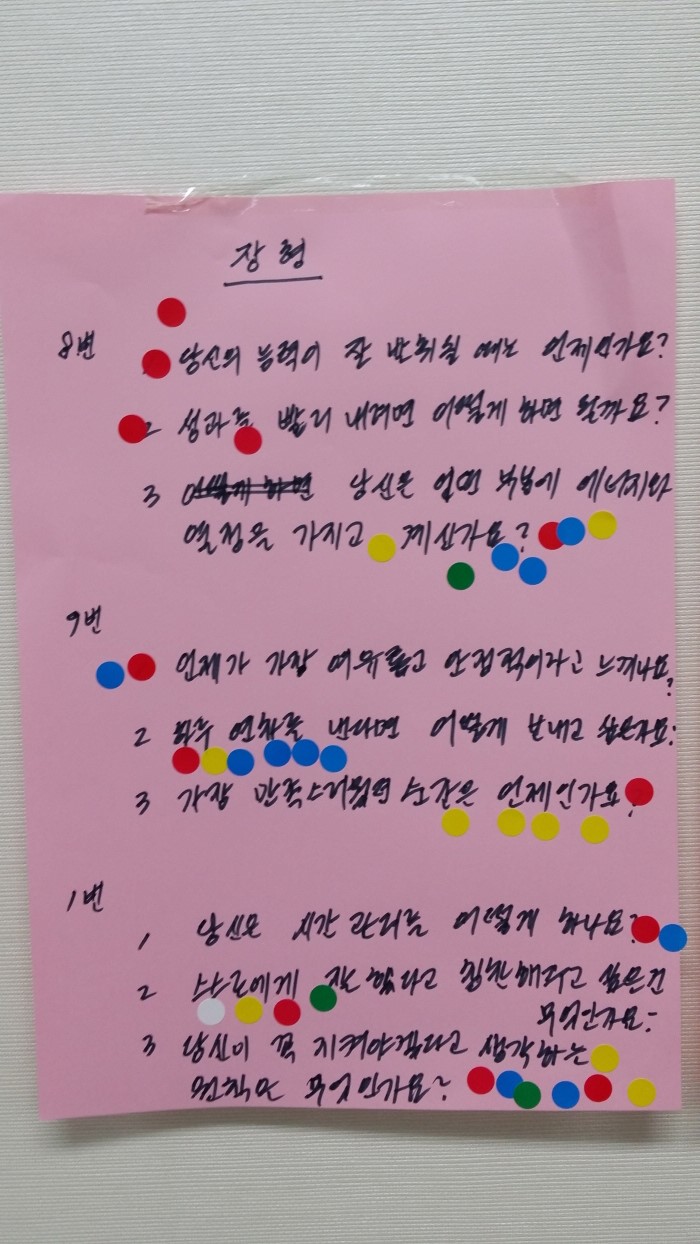 장 형
8번
당신의 능력이 잘 발휘될 때는 언제인가요?
2 성과를 빨리 내려면 어떻게 하면 될까요?
3 어떻게 하면 당신은 어떤 부분에 에너지와
열정을 가지고 계신가요?
9번
언제가 가장 여유롭고 안정적이라고 느끼나요?
2 하루 연차를 낸다면 어떻게 보내고 싶은가요?
3 가장 만족스러웠던 순간은 언제인가요?
1번
1 당신은 시간 관리를 어떻게 하나요?
2 스스로에게 잘 했다고 칭찬해주고 싶은건
무엇인가요?
3 당신이 꼭 지켜야겠다고 생각하는
원칙은 무엇인가요?